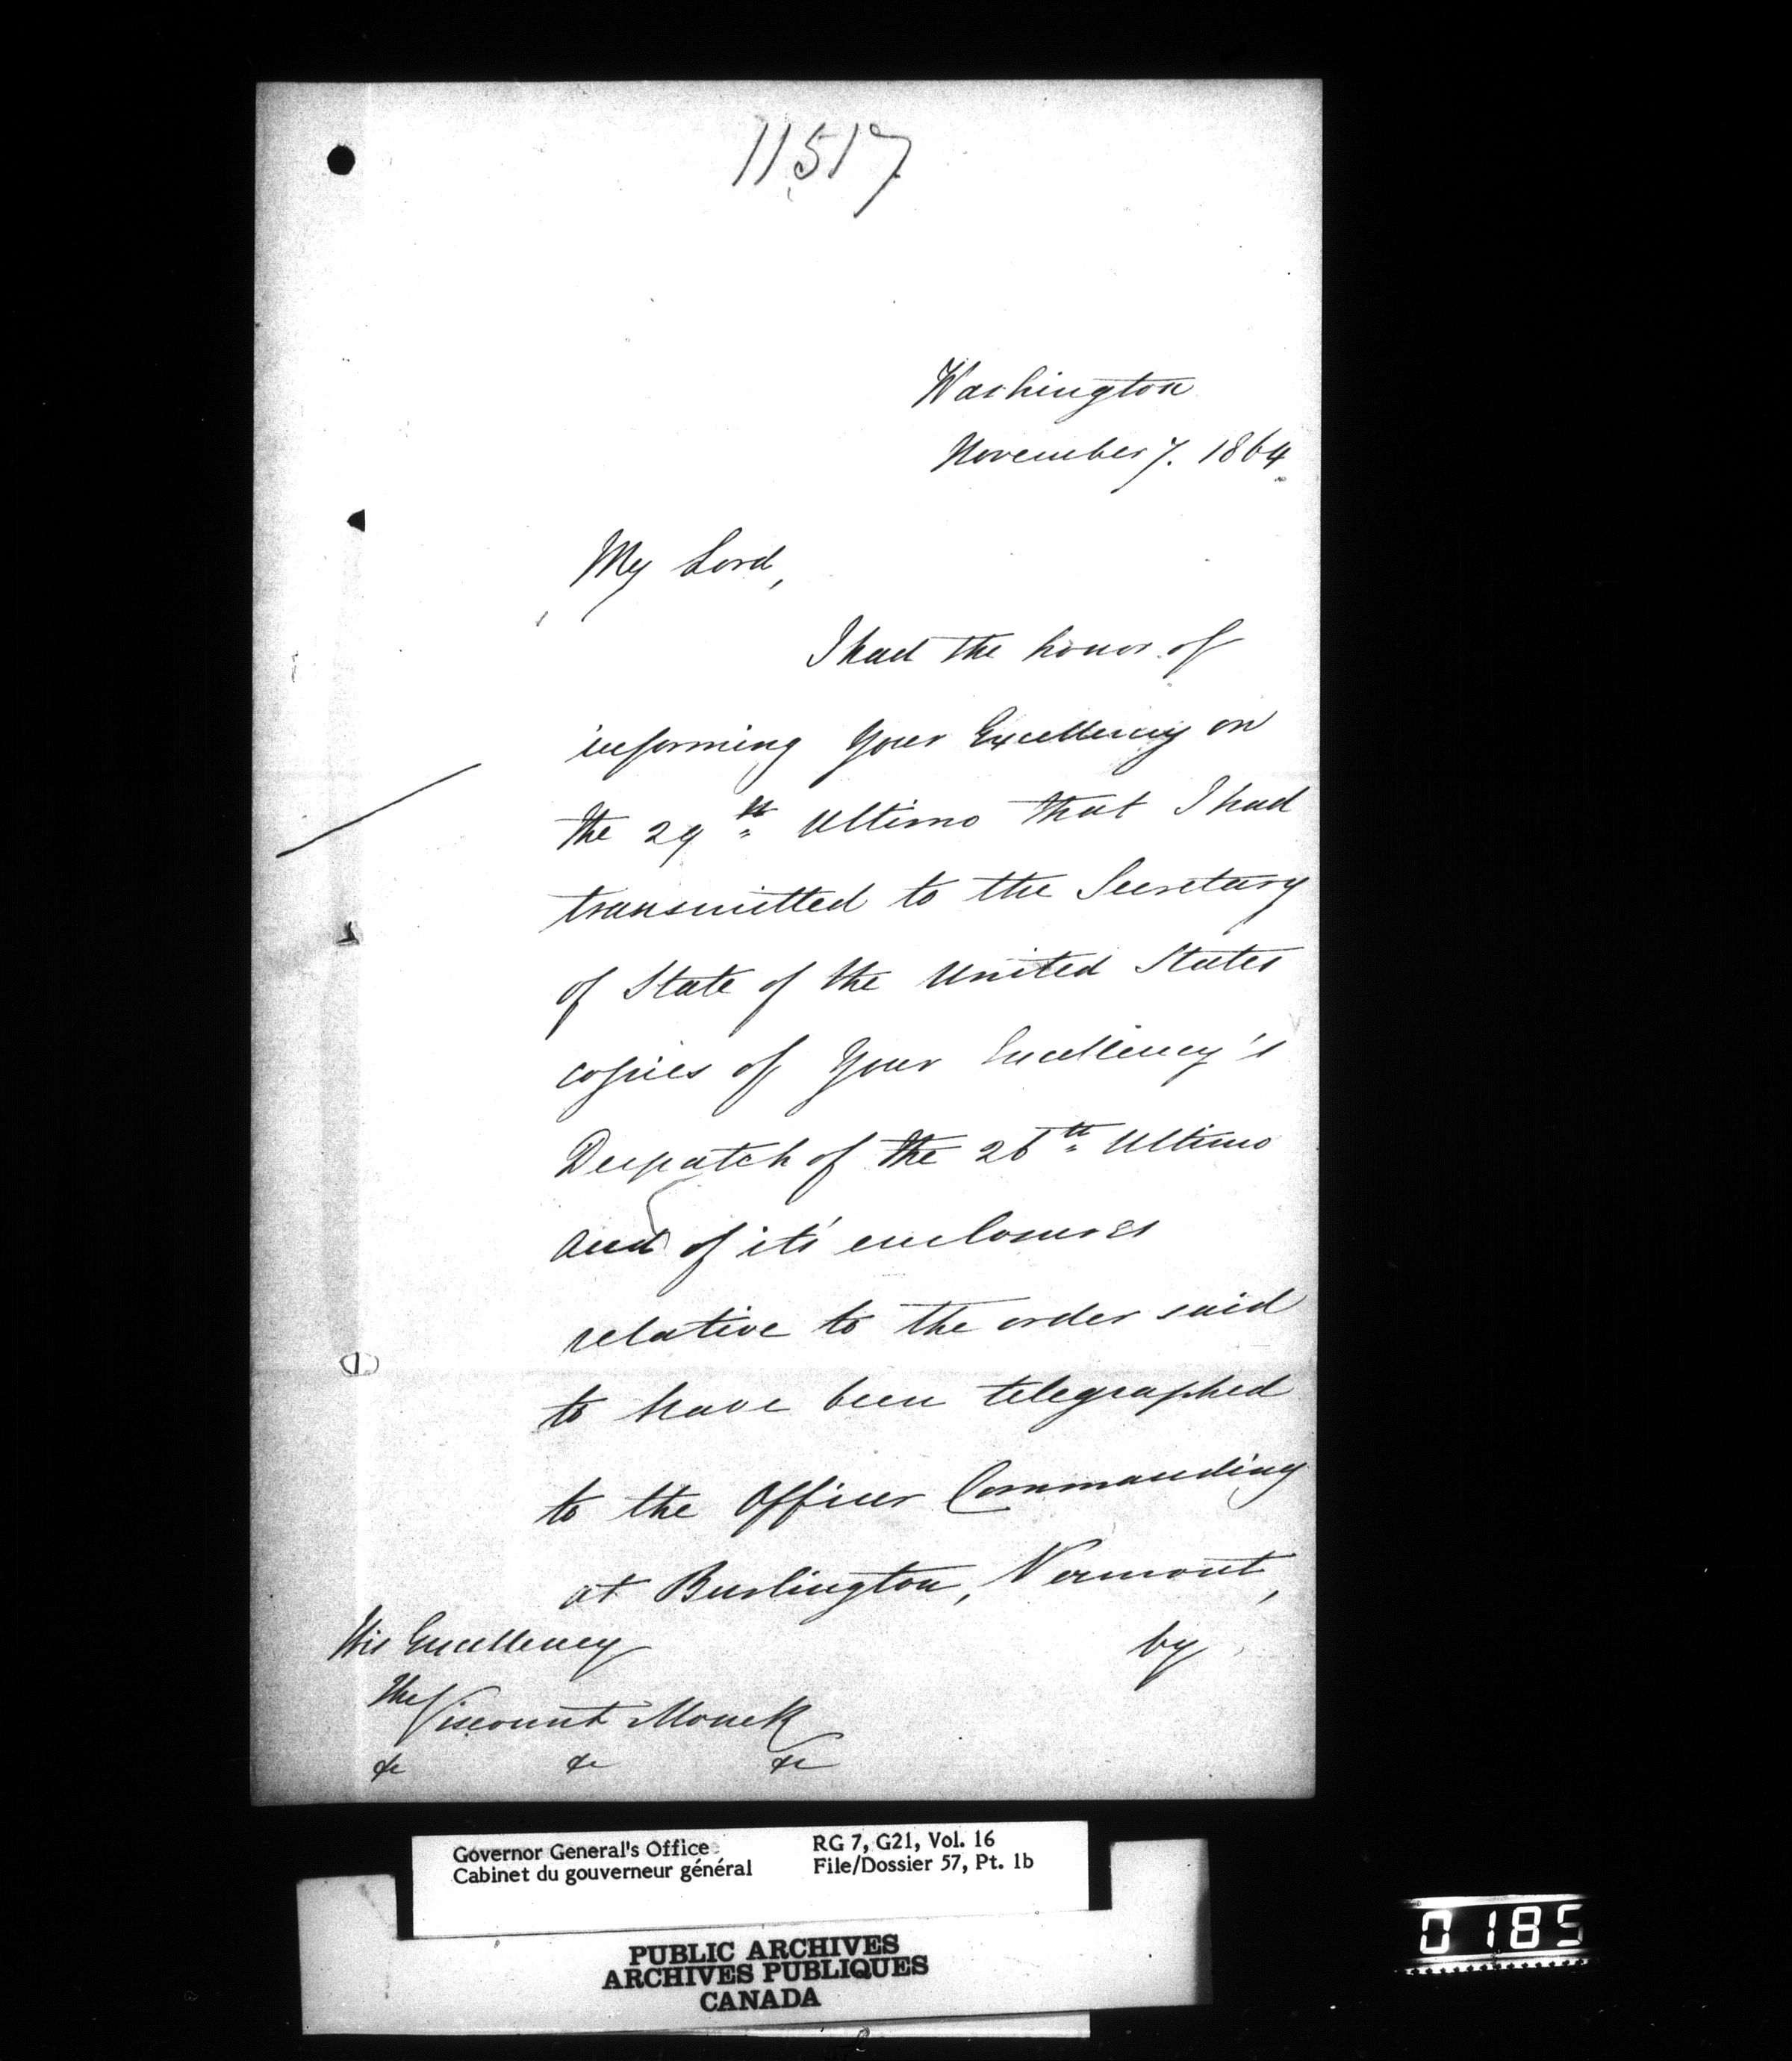 11517
Washington
November 7. 1864.
My Lord,
I had the honor of
informing Your Excellency on
the 29th Ultimo that I had
transmitted to the Secretary
of State of the United States
copies of Your Excellency's
Despatch of the 26th Ultimo
and of its' enclosures
relative to the order said
to have been telegraphed
to the Officer Commanding
at Burlington, Vermont,
by
His Excellency
The Viscount Monck
&c &c &c
Governor General's Office
Cabinet du gouverneur général
RG 7, G21, Vol. 16
File/Dossier 57, Pt. 1b
PUBLIC ARCHIVES
ARCHIVES PUBLIQUES
CANADA
0185